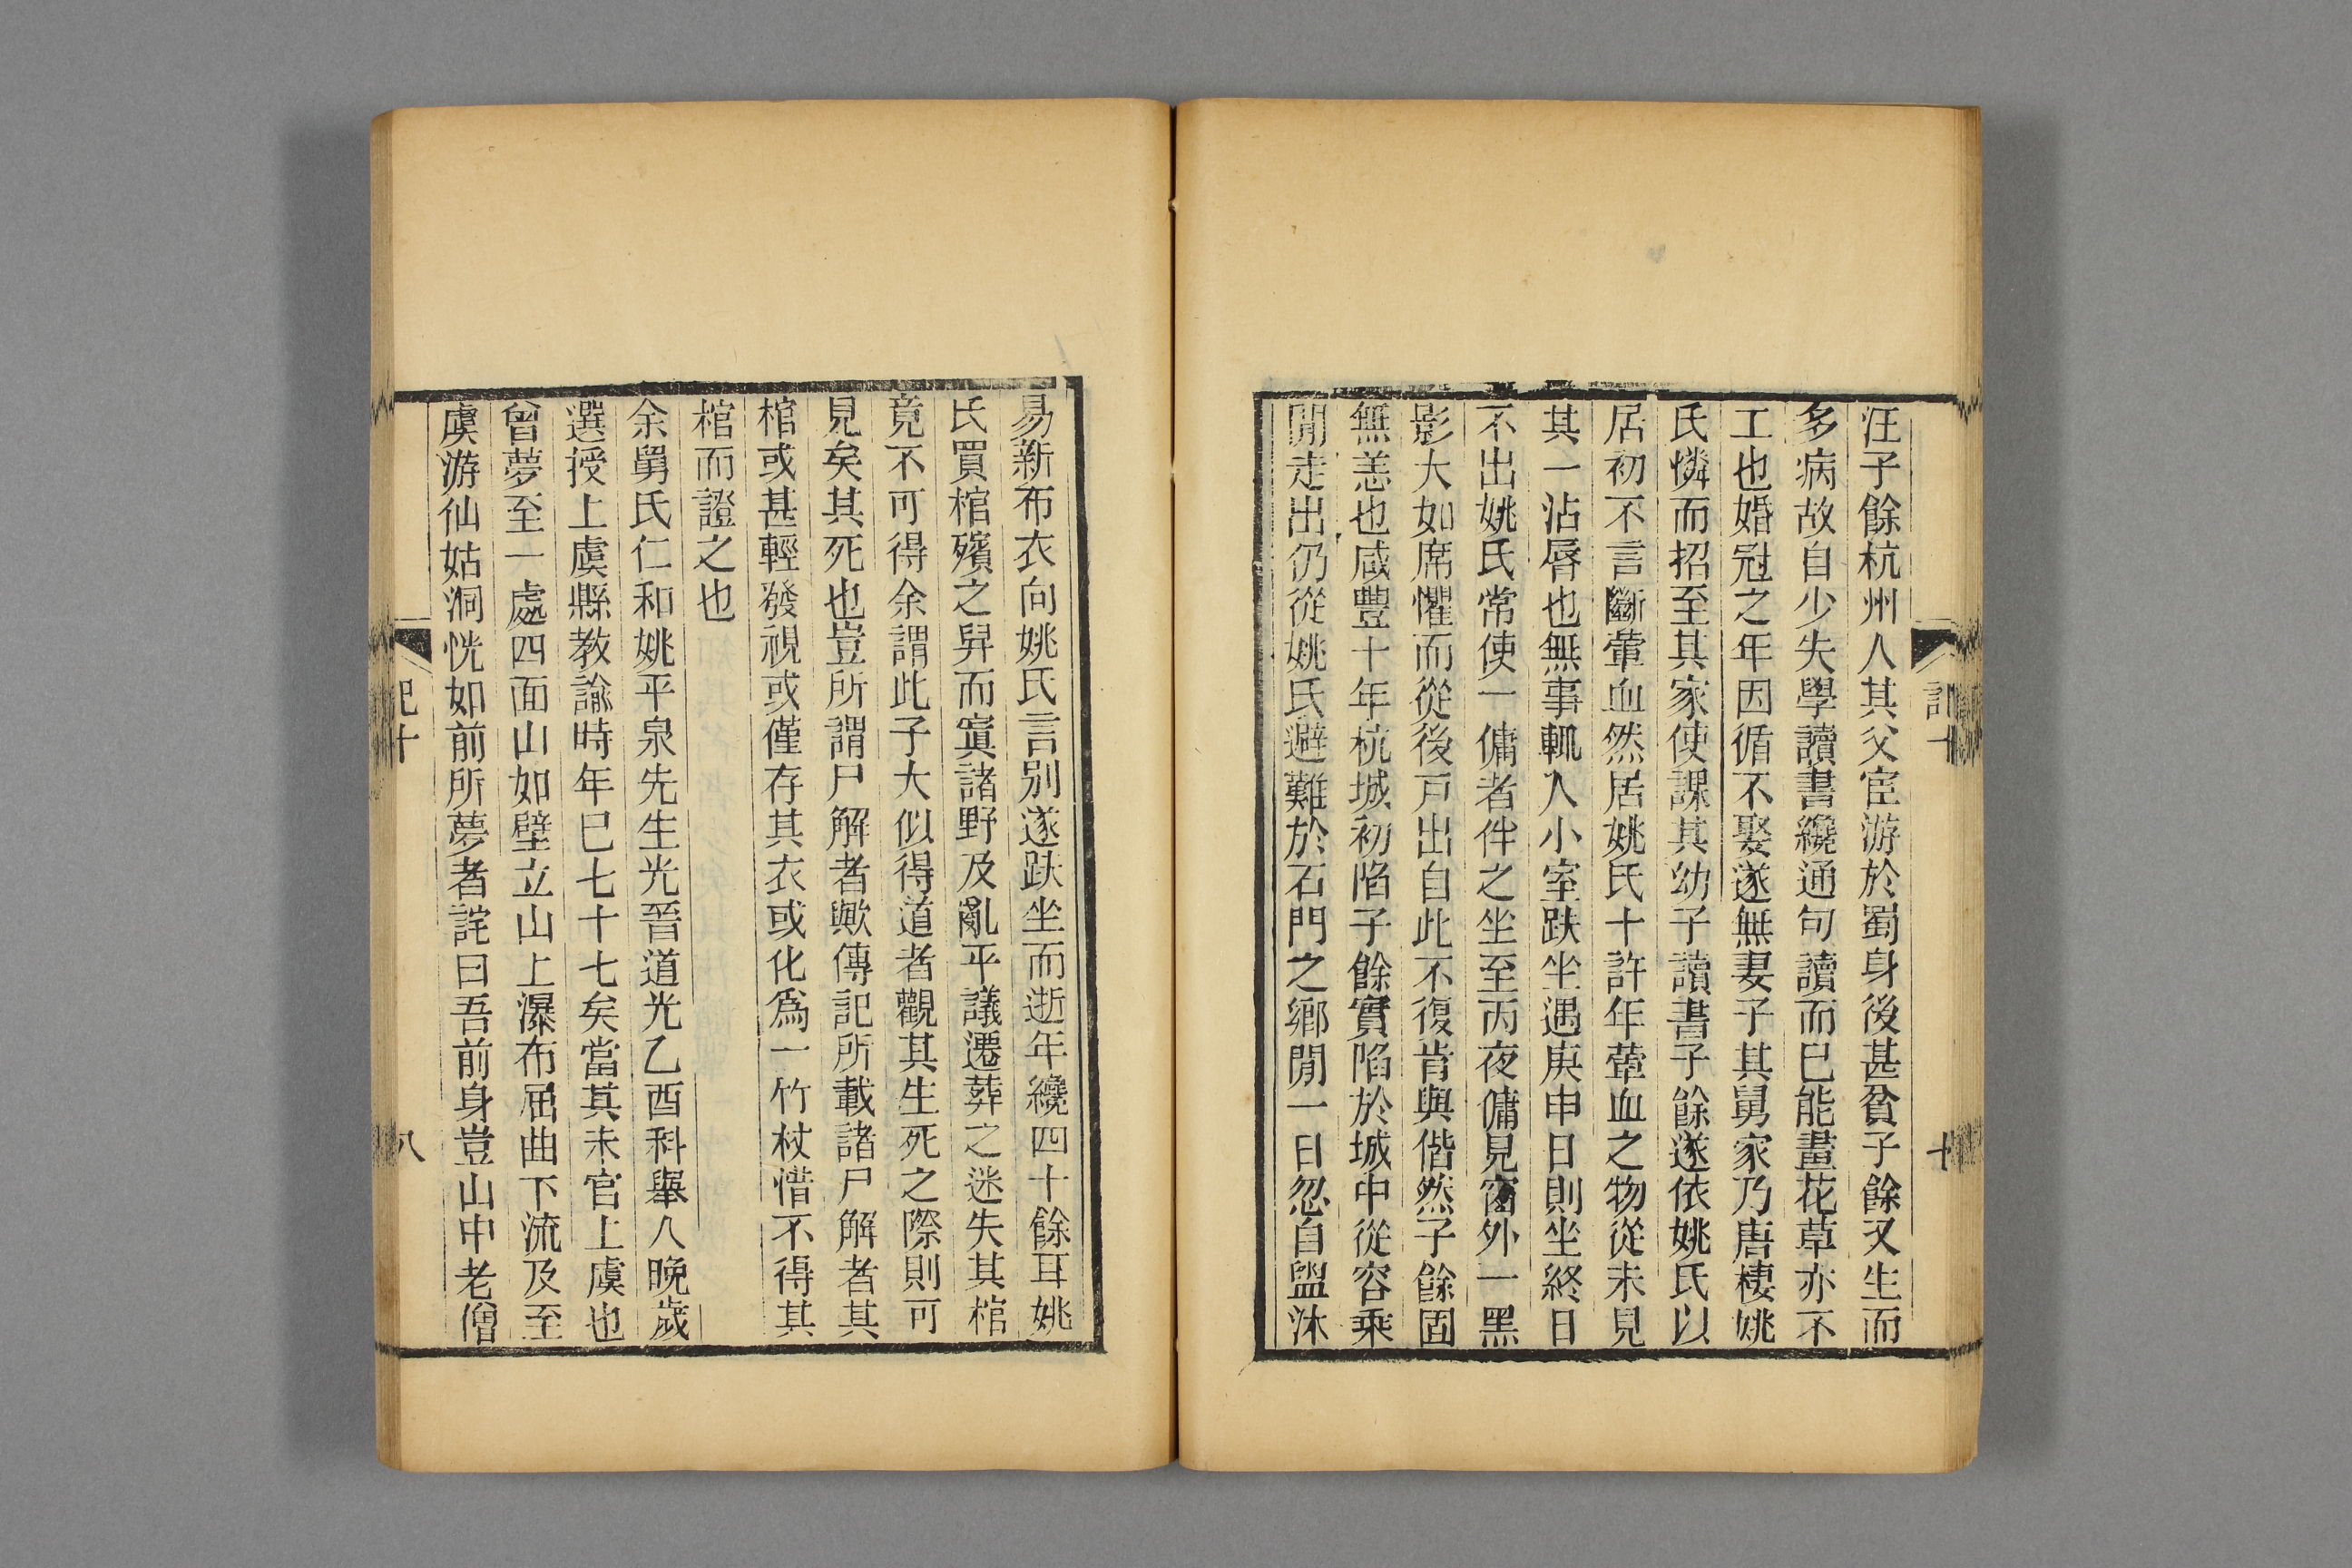 汪子餘杭州人其父宦游於蜀身後甚貧子餘又生而
多病故自少失學讀書纔通句讀而已能畫花草亦不
工也婚冠之年因循不娶遂無妻子其舅家乃唐棲姚
氏憐而招至其家使課其幼子讀書子餘遂依姚氏以
居初不言斷葷血然居姚氏十許年葷血之物從未見
其一沾脣也無事輒入小室趺坐遇庚申日則坐終日
不出姚氏常使一傭者伴之坐至丙夜傭見窗外一黑
影大如席懼而從後戸出自此不復肯與偕然子餘固
無恙也咸豐十年杭城初陷子餘實陷於城中從容乘
閒走出仍從姚氏避難於石門之鄉閒一日忽自盥沐
易新布衣向姚氏言別遂趺坐而逝年纔四十餘耳姚
氏買棺殯之舁而寘諸野及亂平議遷葬之迷失其棺
竟不可得余謂此子大似得道者觀其生死之際則可
見矣其死也豈所謂尸解者歟傳記所載諸尸解者其
棺或甚輕發視或僅存其衣或化爲一竹杖惜不得其
棺而證之也
余舅氏仁和姚平泉先生光晉道光乙酉科舉人晚歲
選授上虞縣教諭時年已七十七矣當其未官上虞也
曾夢至一處四面山如壁立山上瀑布屈曲下流及至
虞游仙姑洞恍如前所夢者詫曰吾前身豈山中老僧
記十
八